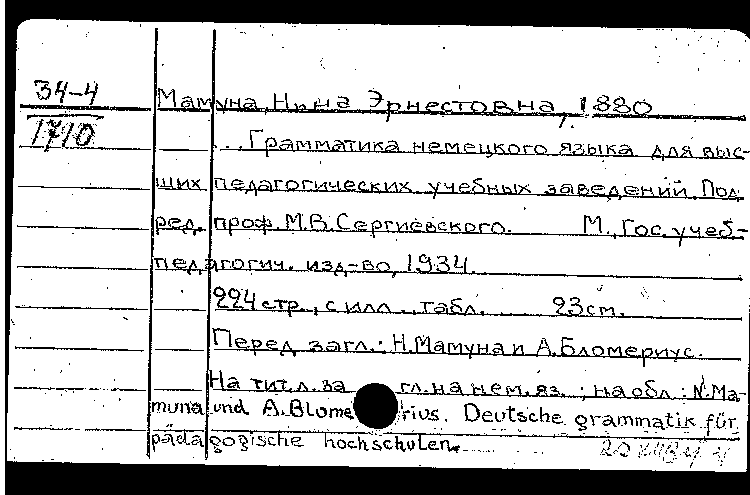 34-4
Мамуна, Нина Эрнестовна, 1880
1710
...Грамматика немецкого языка для выс-
ших педагогических учебных заведений. Под
ред. проф. М.В.Сергиевского. М., Гос. учеб.-
педагогич. изд-во, 1934.
224 стр., с илл., табл. 23см.
Перед загл.: Н.Мамуна и А.Бломериус.
На тит.л. загл. на нем. яз.; на обл.: N.Ma-
muna und A.Blomerius. Deutsche grammatik für
pädagogische hochschulen.